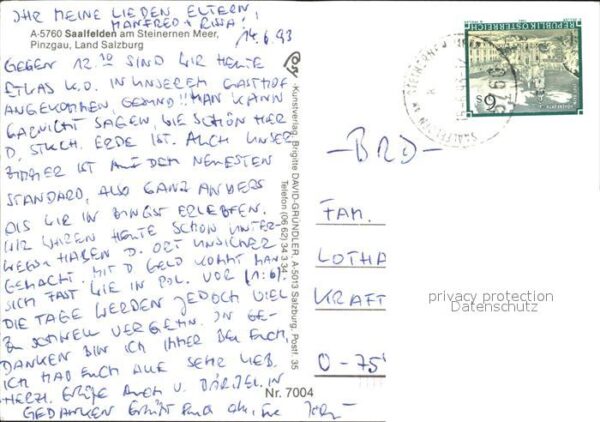 IHR MEINE LIEBEN ELTERN,
MANFRED +
A-5760 Saalfelden am Steinernen Meer,
Pinzgau, Land Salzburg
14.6.93
GEGEN 12.30 SIND WIR HEUTE
ETWAS K.O. IN UNSEREM GASTHOF
ANGEKOMMEN, GESUND!! MAN KANN
GARNICHT SAGEN, WIE SCHÖN HIER
D. STÜCK. ERDE IST. AUCH UNSER
ZIMMER IST AUF DEM NEUESTEN
STANDARD, ALSO GANZ ANDERS
ALS WIR IN ERLEBTEN.
WIR WAREN HEUTE SCHON UNTER-
WEGS HABEN D. ORT UNSICHER
GEMACHT. MIT D GELD KOMMT MAN
SICH FAST WIE IN POL. VOR (1:6).
DIE TAGE WERDEN JEDOCH VIEL
ZU SCHNELL VERGEHN. IN GE-
DANKEN BIN ICH IMMER BEI EUCH.
ICH HAB EUCH ALLE SEHR LIEB.
HERZL. GRÜßE AUCH V. IN
GEDANKEN
Kunstverlag Brigitte DAVID-GRÜNDLER, A-5013 Salzburg, Postf. 35
Telefon (06 62) 34 3 34
Nr. 7004
REPUBLIK ÖSTERREICH
S 6
5760
SAALFELDEN AM STEINERNEN MEER
-BRD-
FAM.
LOTHA
KRAFT
O-75
privacy protection
Datenschutz